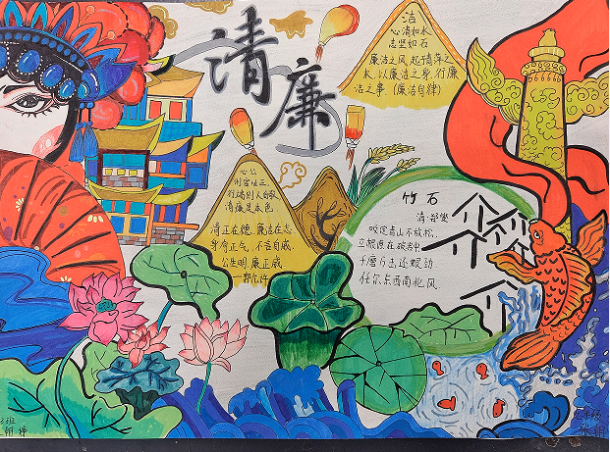 清廉
洁
心清如水
志坚如石
廉洁之风 起青萍之
水 以廉洁之身 行廉
洁之事 (廉洁自律)
心公
则言论正
行端则人自敬
清廉是本色
清正在德 廉洁在志
身有正气 不言自威
公生明 廉正威
竹石
清·郑燮
咬定青山不放松
立根原在破岩中
千磨万击还坚劲
任尔东西南北风